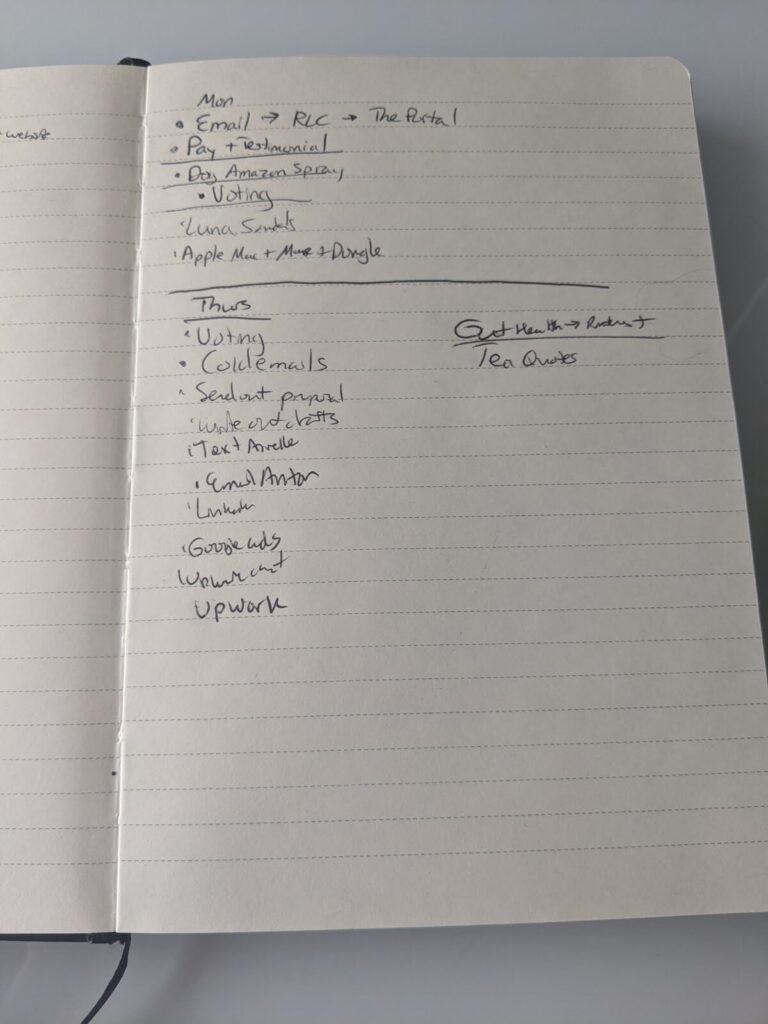 website
Mon
• Email → RLC → The Portal
• Pay + Testimonial
• Dog Amazon Spray
• Voting
• Luna Sandals
• Apple Mac + + Dongle
Thurs
• Voting
• Cold emails
• Send out proposal
• write out drafts
• Text
• Email Anton
• Linkedin
• Google ads
Upwork
Gut Health → Product
Tea Quotes